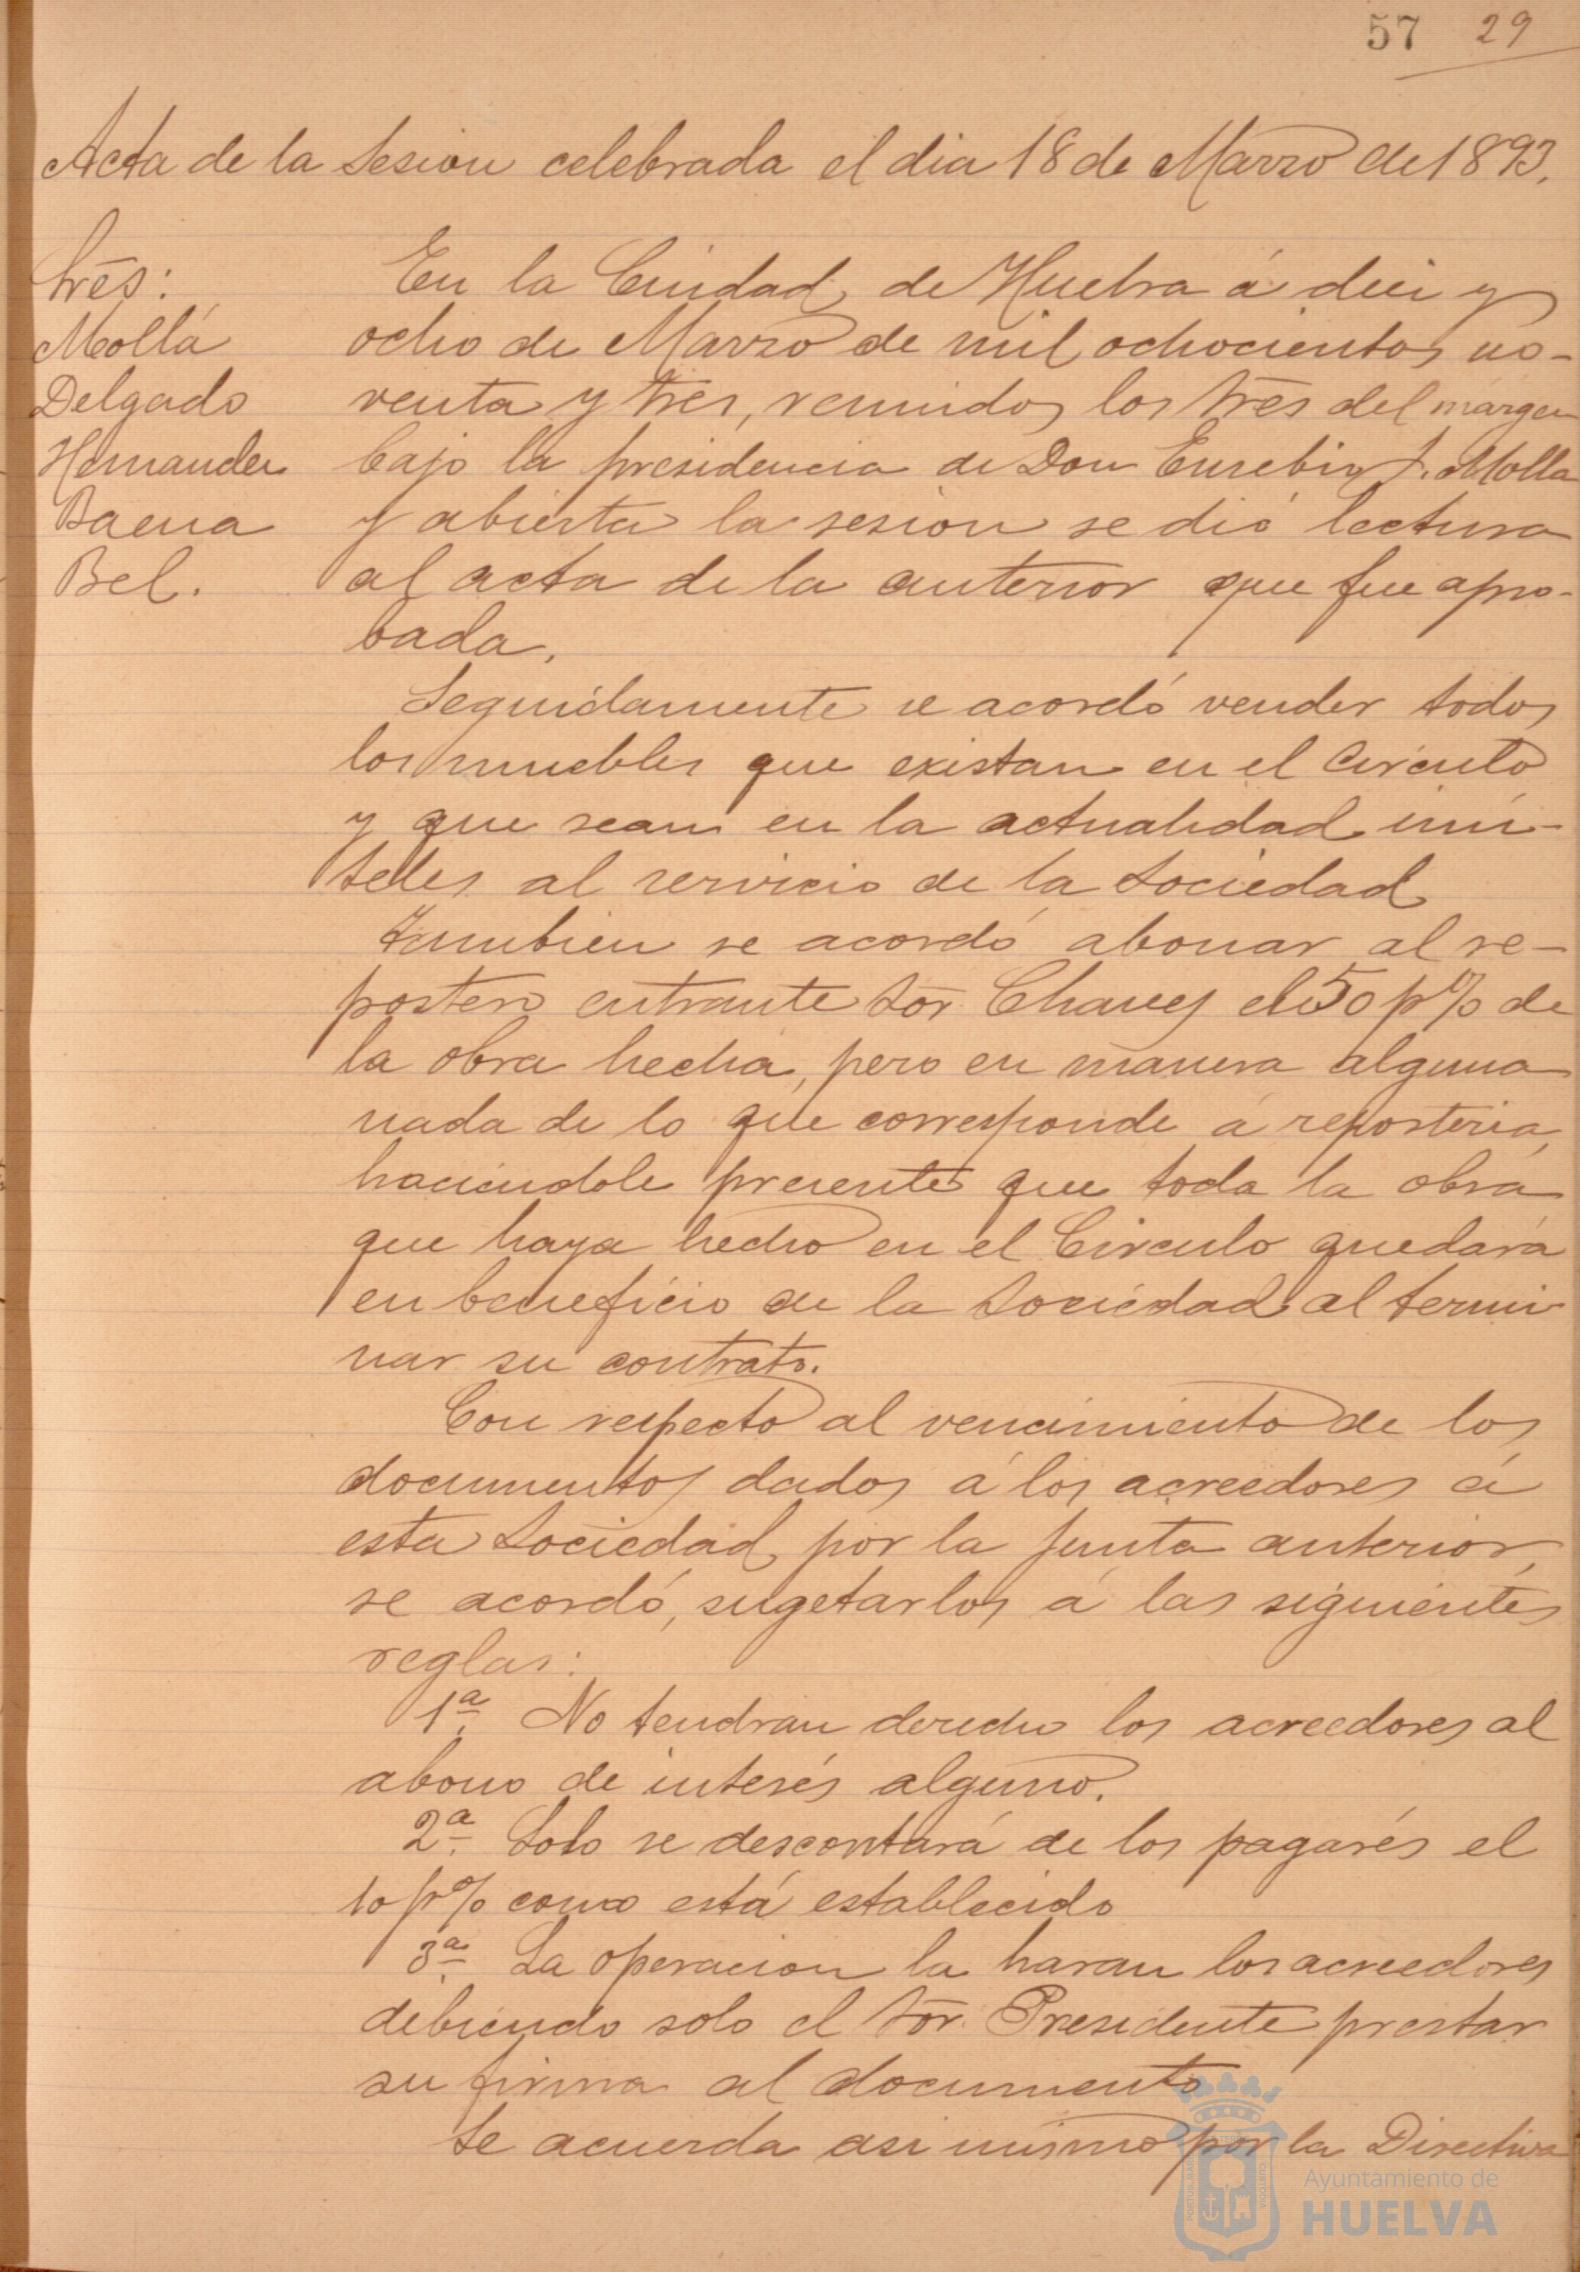 57 29
Acta de la Sesion celebrada el dia 18 de Marzo de 1893.
Srēs:
Mollá
Delgado
Hernandez
Baena
Bel.
En la Ciudad de Huelva á diez y
ocho de Marzo de mil ochocientos no-
venta y tres, reunidos los Srēs del márgen
bajo la presidencia de Don Eusebio J. Molla
y abierta la sesion se dió lectura
al acta de la anterior que fue apro-
bada.
Seguidamente se acordó vender todos
los muebles que existan en el Circulo
y que sean en la actualidad inú-
teles al servicio de la Sociedad
Tambien se acordó abonar al re-
postero entrante Sōr. Chavez el 50 p% de
la obra hecha, pero en manera alguna
nada de lo que corresponde á reposteria,
haciendole presente que toda la obra
que haya hecho en el Circulo quedará
en beneficio de la Sociedad al termi-
nar su contrato.
Con respecto al vencimiento de los
documentos dados á los acreedores á
esta Sociedad por la junta anterior,
se acordó, sugetarlos á las siguientes
reglas:
1ª. No tendran derecho los acreedores al
abono de interés alguno.
2ª. Solo se descontará de los pagarés el
10 p% como está establecido
3ª. La operacion la haran los acreedores
debiendo solo el Sōr. Presidente prestar
su firma al documento
Se acuerda asi mismo por la Directiva
Ayuntamiento de
HUELVA